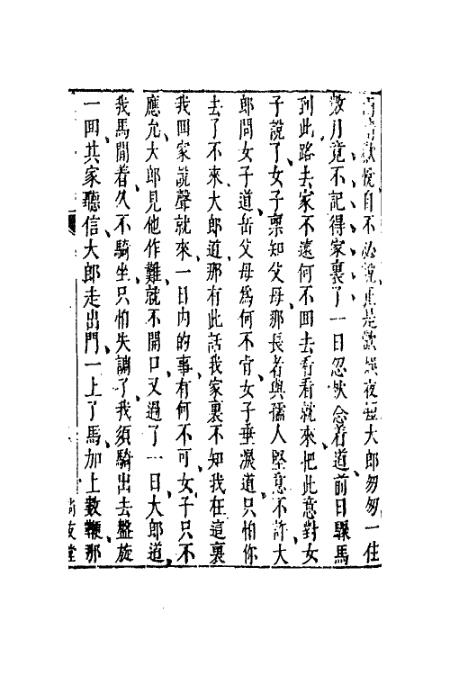 歡悅自不必說正是歡娛夜短大郎匆匆一住
數月竟不記得家裏了一日忽然念着道前日騾馬
到此路去家不遠何不回去看看就來把此意對女
子說了女子稟知父母那長者與孺人堅意不許大
郎問女子道岳父母爲何不肯女子垂淚道只怕你
去了不來大郎道那有此話我家裏不知我在這裏
我回家說聲就來一日內的事有何不可女子只不
應允大郎見他作難就不開口又過了一日大郎道
我馬閒着久不騎坐只怕失調了我須騎出去盤旋
一回其家聽信大郎走出門一上了馬加上數鞭那
尚友堂